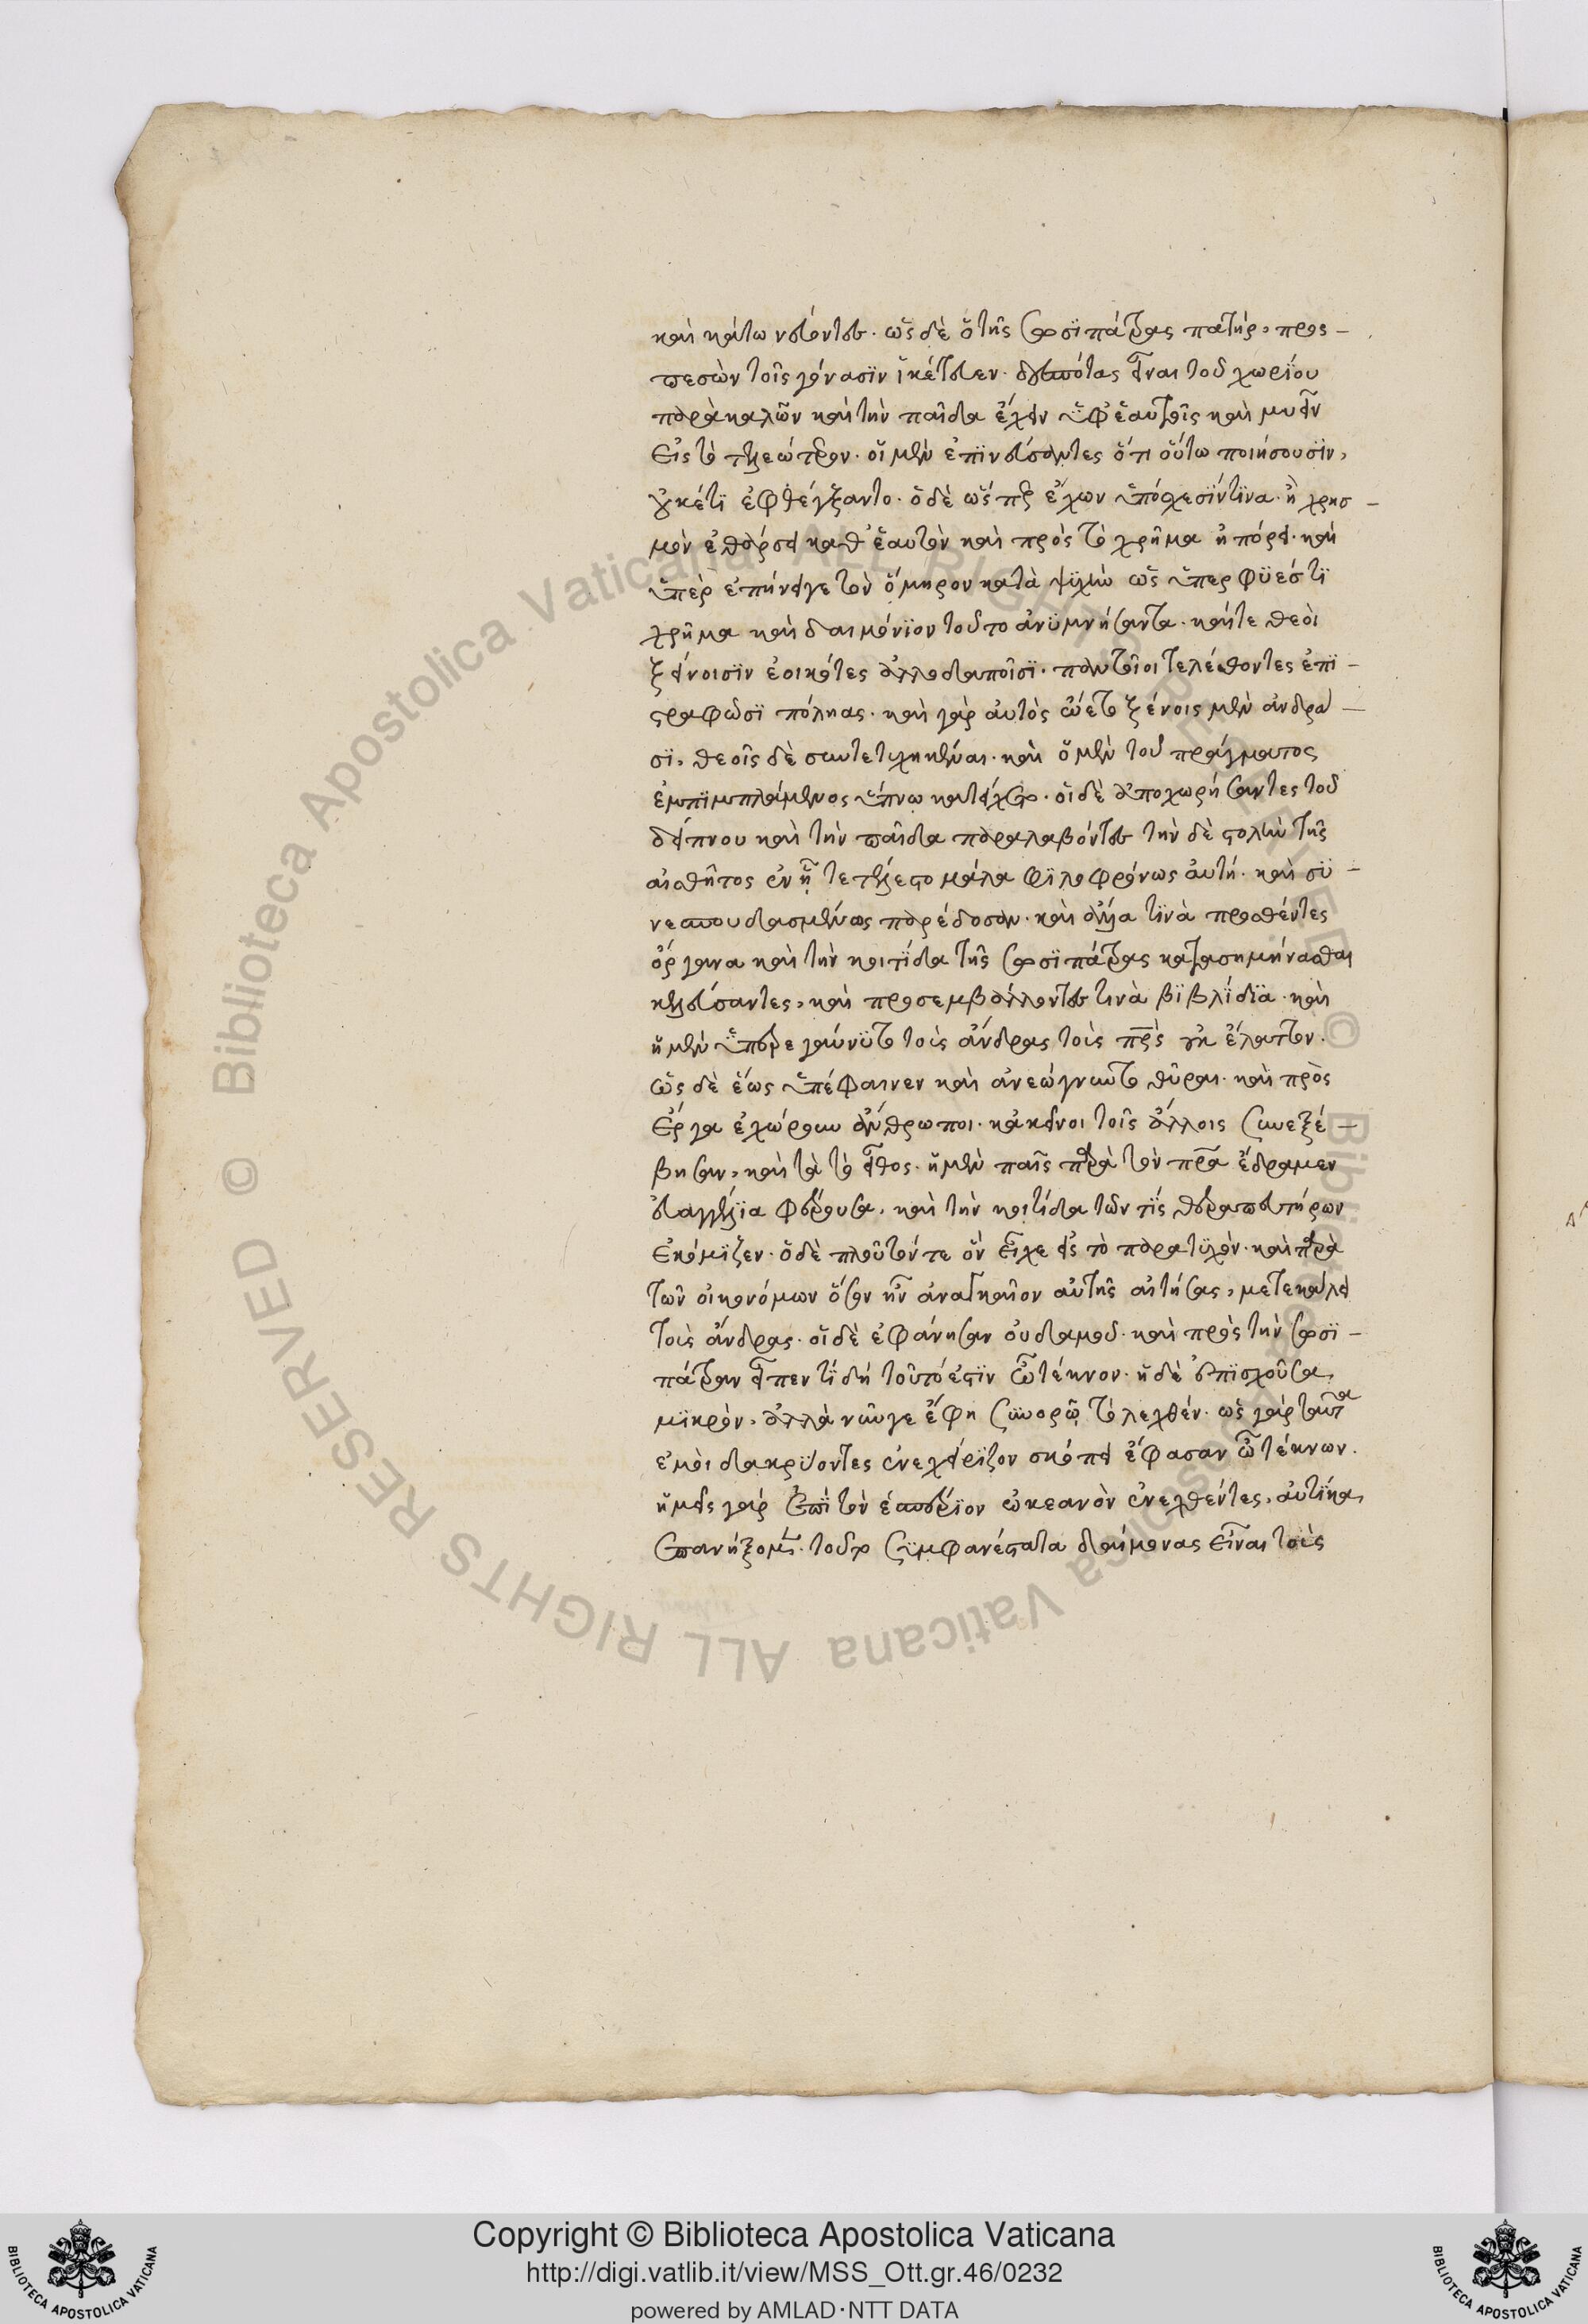 καὶ κάτω νεύοντες. ὡς δὲ ὁ τῆς σωσιπάτρας πατήρ, προσ-
πεσὼν τοῖς γόνασιν ἱκέτευεν. δεσπότας εἶναι τοῦ χωρίου
παρακαλῶν καὶ τὴν παῖδα ἔχειν ὑφ' ἑαυτοῖς καὶ μυεῖν
εἰς τὸ τελεώτερον. οἱ μὲν ἐπινεύσαντες ὅτι οὕτω ποιήσουσιν,
οὐκέτι ἐφθέγξαντο. ὁ δὲ ὥσπερ ἔχων ὑπόσχεσίν τινα ἢ χρησ-
μὸν ἐθάρσει καθ' ἑαυτὸν καὶ πρὸς τὸ χρῆμα ἠπόρει. καὶ
ὑπερεπῄνει γε τὸν ὅμηρον κατὰ ψυχὴν ὡς ὑπερφυές τι
χρῆμα καὶ δαιμόνιον τοῦτο ἀνυμνήσαντα. καί τε θεοὶ
ξείνοισιν ἐοικότες ἀλλοδαποῖσι. παντοῖοι τελέθοντες ἐπι-
στρωφῶσι πόληας. καὶ γὰρ αὐτὸς ᾤετο ξένοις μὲν ἀνδρά-
σι, θεοῖς δὲ συντετυχηκέναι. καὶ ὁ μὲν τοῦ πράγματος
ἐμπιμπλάμενος ὕπνῳ κατείχετο. οἱ δὲ ἀποχωρήσαντες τοῦ
δείπνου καὶ τὴν παῖδα παραλαβόντες τὴν δὲ στολὴν τῆς
αἰσθῆτος ἐν ᾗ τετέλεστο μάλα φιλοφρόνως αὐτῇ. καὶ συ-
νεσπουδασμένως παρέδοσαν. καὶ ἄλλα τινὰ προσθέντες
ὄργανα καὶ τὴν κοιτίδα τῆς σωσιπάτρας κατασημήνασθαι
κελεύσαντες, καὶ προσεμβάλλοντες τινὰ βιβλίδια. καὶ
ἡ μὲν ὑπερεγάνυτο τοὺς ἄνδρας τοὺς πρς οὐκ ἔλαττον.
ὡς δὲ ἕως ὑπέφαινεν καὶ ἀνεῴγνυντο θύραι. καὶ πρὸς
ἔργα ἐχώρουν ἄνθρωποι. κἀκεῖνοι τοῖς ἄλλοις συνεξέ-
βησαν, κατὰ τὸ εἶθος. ἡ μὲν παῖς παρὰ τὸν πρα ἔδραμεν
εὐαγγέλια φέρουσα, καὶ τὴν κοιτίδα τῶν τις θεραπευτήρων
ἐκόμιζεν. ὁ δὲ πλοῦτόν τε ὃν εἶχε εἰς τὸ παρατυχὸν. καὶ παρὰ
τῶν οἰκονόμων ὅσον ἦν ἀναγκαῖον αὐτῆς αἰτήσας, μετεκάλει
τοὺς ἄνδρας. οἱ δὲ ἐφάνησαν οὐδαμοῦ. καὶ πρὸς τὴν σωσι-
πάτραν εἶπεν τί δὴ τοῦτό ἐστιν ὦ τέκνον. ἡ δὲ ἐπισχοῦσα
μικρὸν, ἀλλὰ νῦν γε ἔφη συνορῶ τὸ λεχθέν. ὡς γὰρ ταῦτα
ἐμοὶ δακρύοντες ἐνεχείριζον σκόπει ἔφασαν ὦ τέκνον.
ἡμεῖς γὰρ ἐπὶ τὸν ἑσπέριον ὠκεανὸν ἐνεχθέντες, αὐτίκα
ἐπανήξομεν. τοῦτο συμφανέστατα δαίμονας εἶναι τοὺς